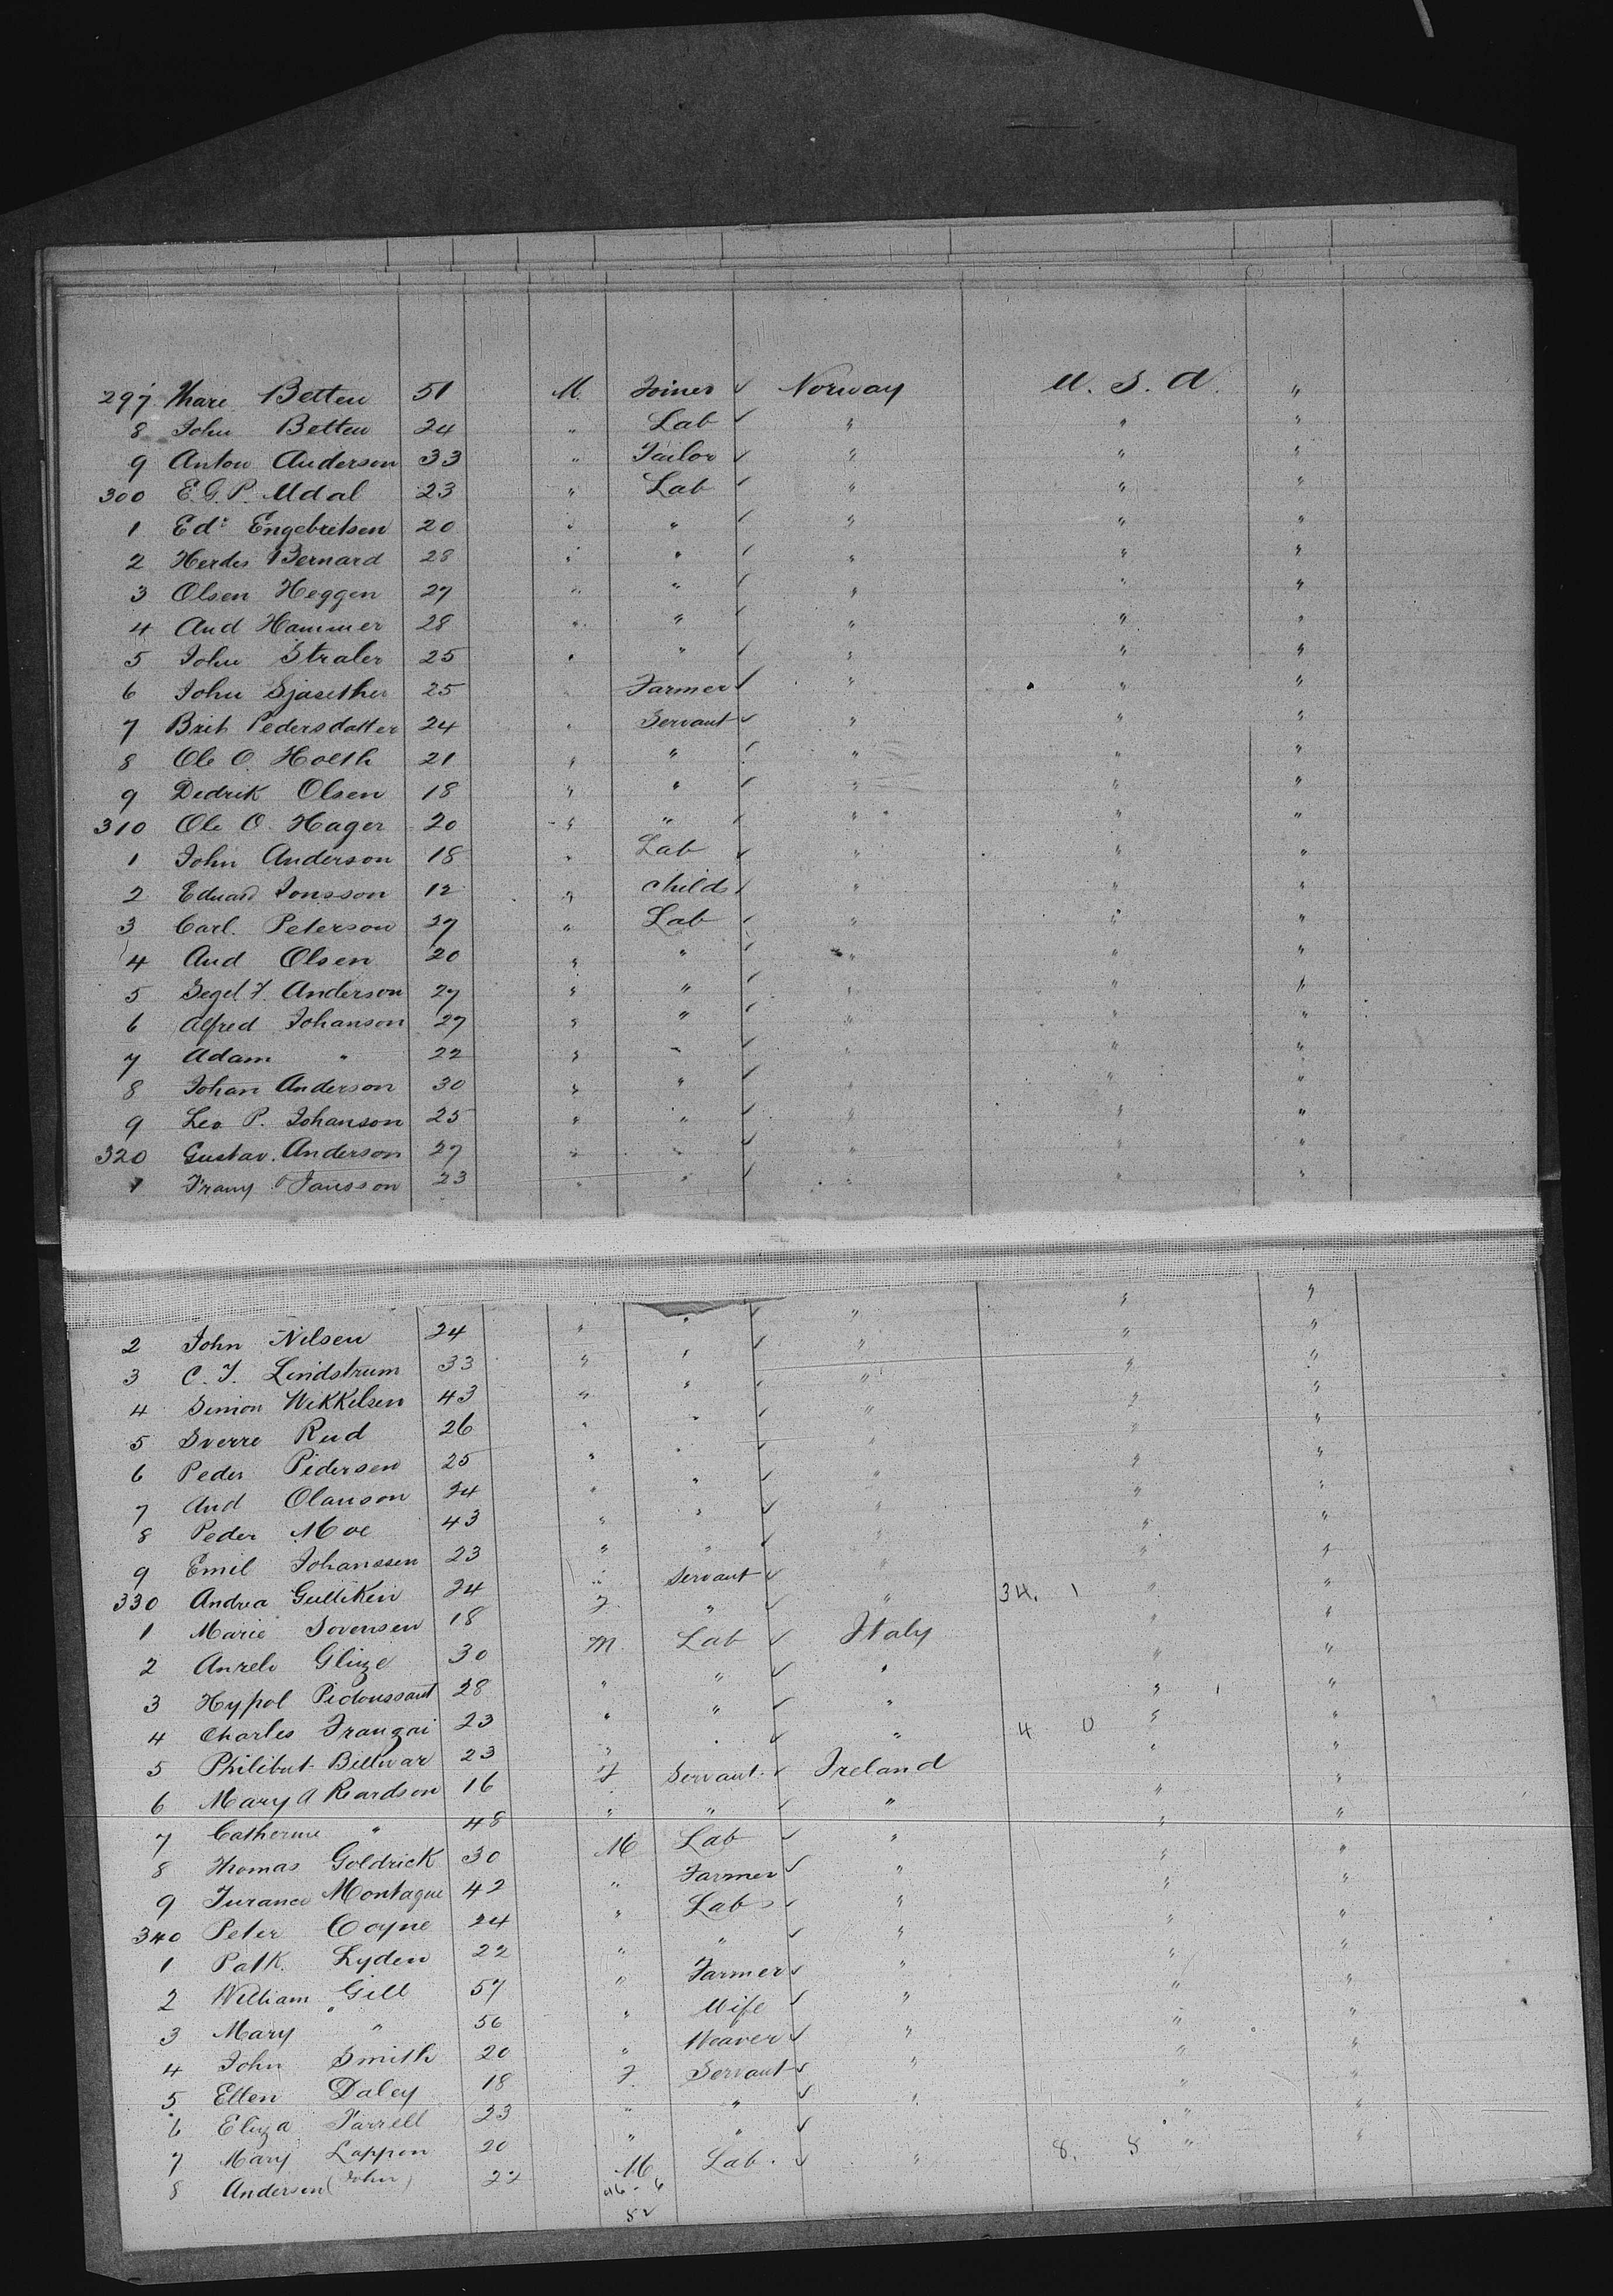 297 Thare Betten 51 M. Joiner ✓ Norway U. S. A. "
8 John Betten 24 " Lab ✓ " " "
9 Anton Anderson 33 " Tailor ✓ " " "
300 E. G. P. Udal 23 " Lab ✓ " " "
1 Edr Engebretsen 20 " " ✓ " " "
2 Herdis Bernard 28 " " ✓ " " "
3 Olsen Heggen 27 " " ✓ " " "
4 And Hammer 28 " " ✓ " " "
5 John Straler 25 " " ✓ " " "
6 John Sjasether 25 " Farmer ✓ " " "
7 Brit Pedersdatter 24 " Servant ✓ " " "
8 Ole O Hoeth 21 " " ✓ " " "
9 Dedrik Olsen 18 " " ✓ " " "
310 Ole O. Hager 20 " " ✓ " " "
1 John Anderson 18 " Lab ✓ " " "
2 Eduard Jonsson 12 " Child ✓ " " "
3 Carl. Peterson 27 " Lab ✓ " " "
4 And Olsen 20 " " ✓ " " "
5 Segel F. Anderson 27 " " ✓ " " "
6 Alfred Johanson 27 " " ✓ " " "
7 Adam " 22 " " ✓ " " "
8 Johan Anderson 30 " " ✓ " " "
9 Leo P. Johanson 25 " " ✓ " " "
320 Gustav. Anderson 27 " " ✓ " " "
1 Frany Jansson 23 " " ✓ " " "
2 John Nilsen 24 " " ✓ " " "
3 C. J. Lindstrum 33 " " ✓ " " "
4 Simon Wikkelsen 43 " " ✓ " " "
5 Sverre Rud 26 " " ✓ " " "
6 Peder Pidersen 25 " " ✓ " " "
7 And Olanson 24 " " ✓ " " "
8 Peder Moe 43 " " ✓ " " "
9 Emil Johanssen 23 " " ✓ " " "
330 Andrea Gulliken 24 " Servant ✓ " " "
1 Marie Sovensen 18 F " ✓ " 34. 1 " "
2 Anrelo Glize 30 M Lab ✓ Italy " "
3 Hypol Pidoussant 28 " " ✓ " " "
4 Charles Franzai 23 " " ✓ " " "
5 Philibut Bellvar 23 " " ✓ " 4 0 " "
6 Mary A Reardson 16 F Servant ✓ Ireland " "
7 Catherine " 48 " " ✓ " " "
8 Thomas Goldrick 30 M Lab ✓ " " "
9 Turance Montague 42 " Farmer ✓ " " "
340 Peter Coyne 24 " Lab ✓ " " "
1 Patk. Lyden 22 " " ✓ " " "
2 William Gill 57 " Farmer ✓ " " "
3 Mary " 56 " Wife ✓ " " "
4 John Smith 20 " Weaver ✓ " " "
5 Ellen Daley 18 F Servant ✓ " " "
6 Eliza Farrell 23 " " ✓ " " "
7 Mary Lappen 20 " " ✓ " " "
8 Anderson (John) 22 M Lab. ✓ " 8. 8 " "
46 - 6
52